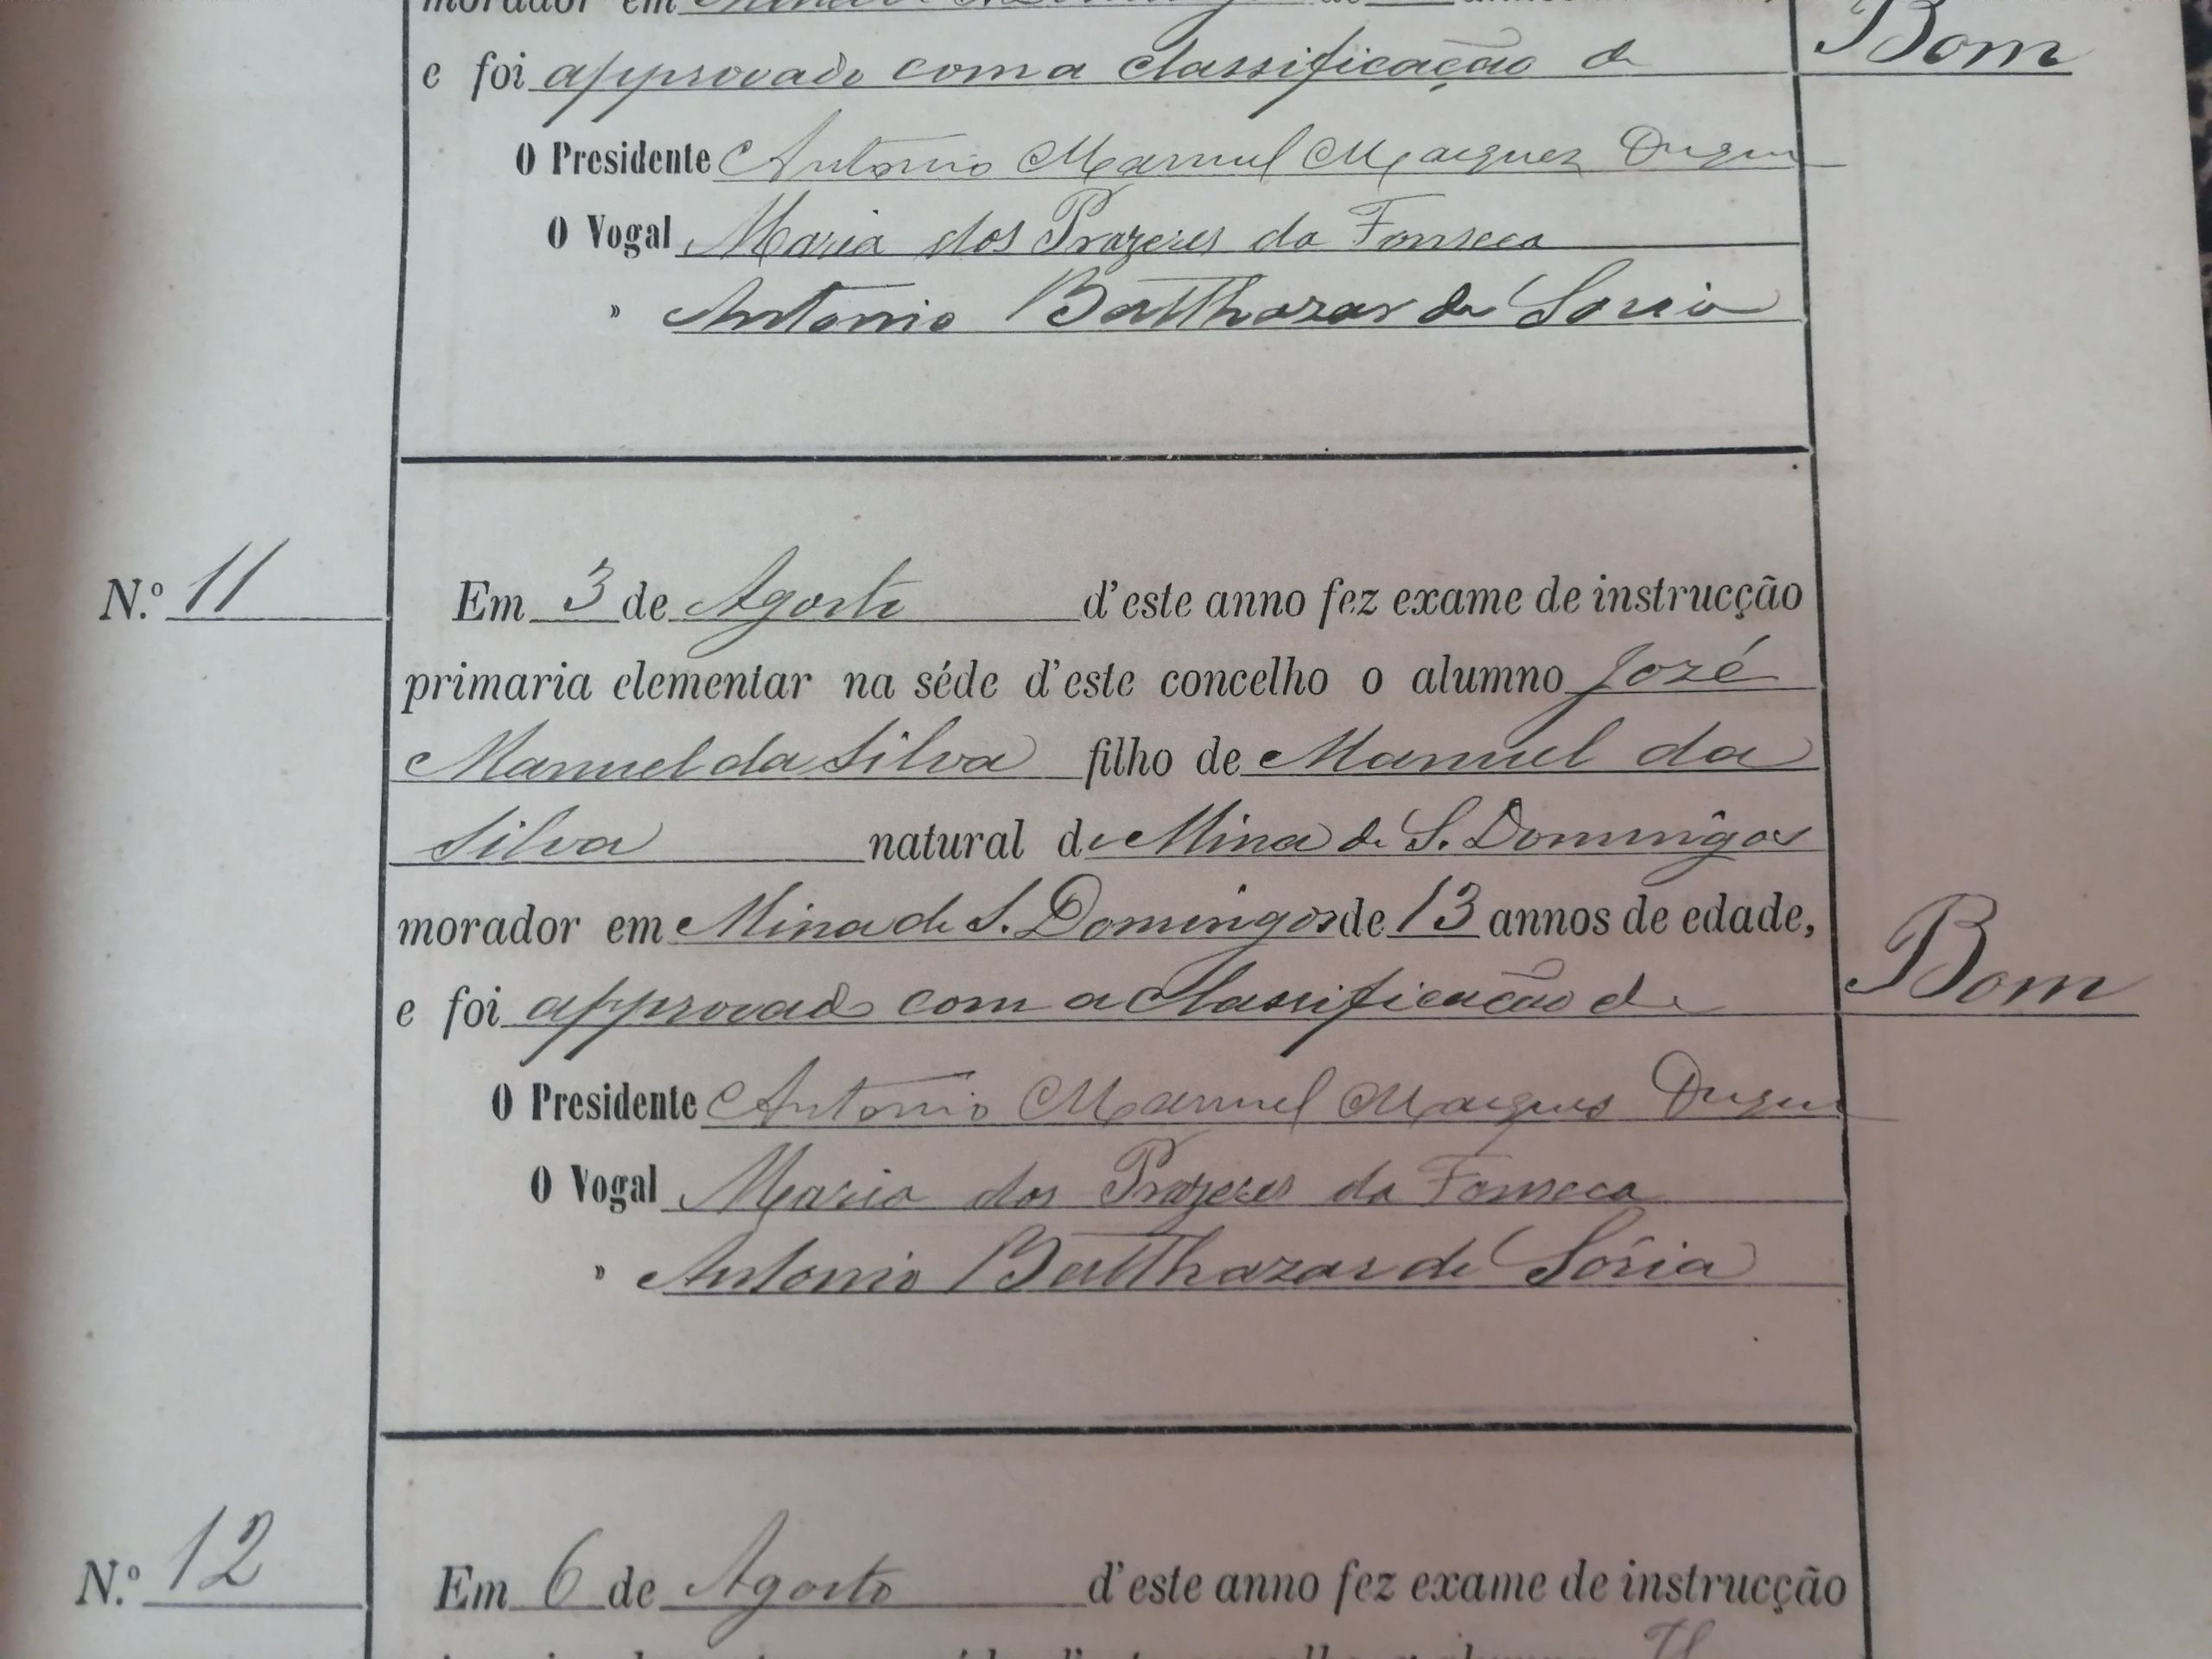 morador em
e foi approvado com a classificação de Bom
O Presidente Antonio Manuel Marques
O Vogal Maria dos Prazeres da Fonseca
» Antonio Balthazar de Soria
N.º 11 Em 3 de Agosto d'este anno fez exame de instrucção
primaria elementar na séde d'este concelho o alumno Jozé
Manuel da Silva filho de Manuel da
Silva natural de Mina de S. Domingos
morador em Mina de S. Domingos de 13 annos de edade,
e foi approvado com a classificacão de Bom
O Presidente Antonio Manuel Marques
O Vogal Maria dos Prazeres da Fonseca
» Antonio Balthazar de Sória
N.º 12 Em 6 de Agosto d'este anno fez exame de instrucção